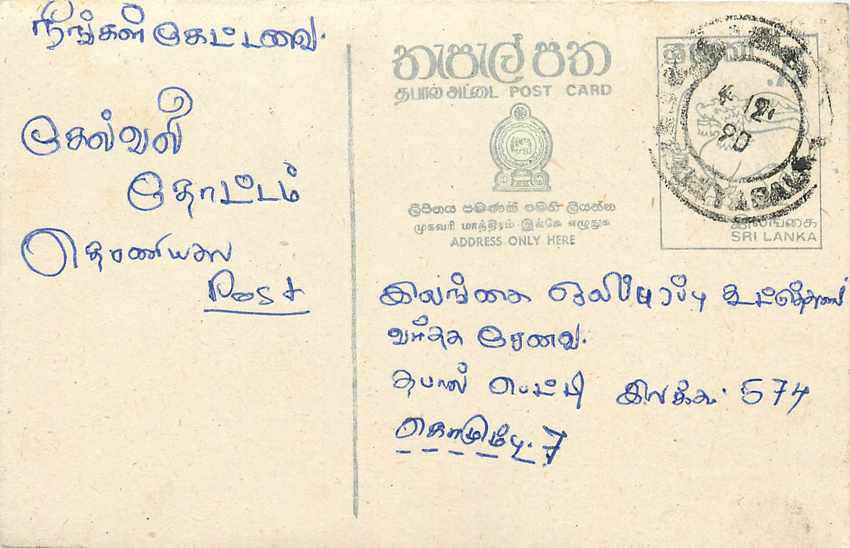 நீங்கள் கேட்டவை.
கேல்வளி
தோட்டம்
தெமணியகல
Post
තැපැල් පත
தபால் அட்டை POST CARD
ලිපිනය පමණක් මෙහි ලියන්න
முகவரி மாத்திரம் இங்கே எழுதுக
ADDRESS ONLY HERE
4 12
90
இலங்கை
SRI LANKA
இலங்கை ஒலிபரப்பு
வர்த்தக சேவை.
தபால் பெட்டி இலக்க. 574
கொழும்பு. 7